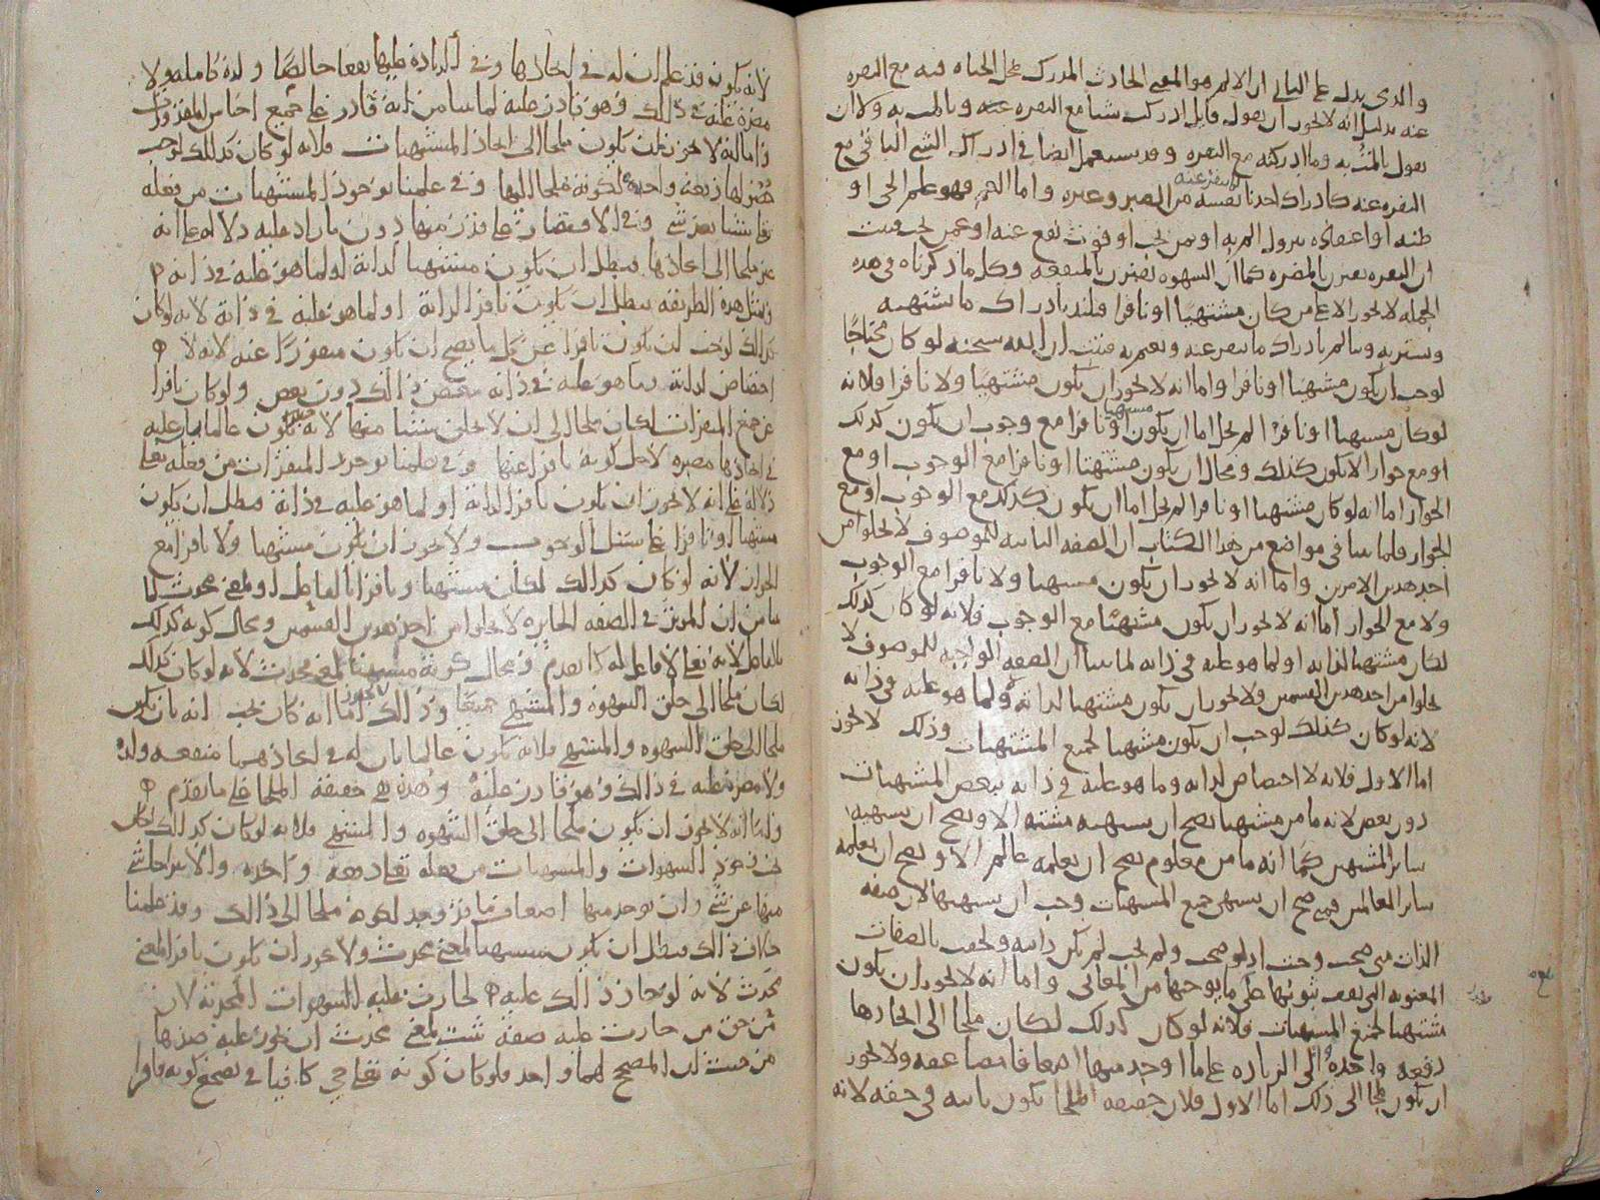 والذي يدل على الثاني ان الالم هو المعنى الحادث المدرك بمحل الحياة فيه مع النفرة
عنه بدليل انه لا يجوز ان يقول قايل ادركت شيا مع النفرة عنه وما المت به ولا ان
يقول المت به وما ادركته مع النفره وقد يستعمل ايضا في ادراك الشي الباقي مع
النفره عنه كادراك احدنا نفسه من وغيره واما الغم فهو علم الحي او
ظنه او اعتقاده بنزول الم به او بمن يحب او فوت نفع عنه او عمن يحب فثبت
ان النفره تعتبر بالمضره كما ان الشهوه تعتبر بالمنفعه وكل ما ذكرناه في هذه
الجمله لا يجوز الا على من كان مشتهيا او نافرا فيلتذ بادراك ما يشتهيه
ويستر به ويتالم بادراك ما ينفر عنه ويغتم به فثبت ان الله سبحنه لو كان محتاجا
لوجب ان يكون مشتهيا او نافرا واما انه لا يجوز ان يكون مشتهيا ولا نافرا فلانه
لو كان مشتهيا او نافرا لم يخل اما ان يكون مشتهيا او نافرا مع وجوب ان يكون كذلك
او مع جواز الا يكون كذلك ومحال ان يكون مشتهيا او نافرا مع الوجوب او مع
الجواز اما انه لو كان مشتهيا او نافرا لم يخل اما ان يكون كذلك مع الوجوب او مع
الجواز فلما بينا في مواضع من هذا الكتاب ان الصفه الثابته للموصوف لا تخلوا من
احد هذين الامرين واما انه لا يجوز ان يكون مشتهيا ولا نافرا مع الوجوب
ولا مع الجواز اما انه لا يجوز ان يكون مشتهيا مع الوجوب فلانه لو كان كذلك
لكان مشتهيا لذاته او لما هو عليه في ذاته لما بينا ان الصفه الواجبه للموصوف لا
تخلوا من احد هذين القسمين ولا يجوز ان يكون مشتهيا لذاته ولما هو عليه في ذاته
لانه لو كان كذلك لوجب ان يكون مشتهيا لجميع المشتهيات وذلك لا يجوز
اما الاول فلانه لا اختصاص لذاته وما هو عليه في ذاته ببعض المشتهيات
دون بعض لانه ما من مشتهيا يصح ان يشتهيه مشته الا ويصح ان يشتهيه
ساير المشتهين كما انه ما من معلوم يصح ان يعلمه عالم الا ويصح ان يعلمه
ساير العالمين فمتى صح ان يشتهي جميع المشتهيات وجب ان يشتهيها لان صفه
الذات متى صحت وجبت اذ لو صحت ولم تجب لم تكن ذاتيه ولحقت بالصفات
المعنويه التي يقف ثبوتها على ما يوجبها من المعاني واما انه لا يجوز ان يكون
مشتهيا لجميع المشتهيات فلانه لو كان كذلك لكان ملجا الى ايجادها
دفعه واحده والى الزياده على ما اوجد منها اضعافا مضاعفه ولا يجوز
ان يكون ملجا الى ذلك اما الاول فلان حقيقه الملجا تكون ثابته في حقه لانه
لانه يكون قد علم ان له في ايجادها وفي الزيادة عليها نفعا خالصا ولذة كامله ولا
مضرة عليه في ذلك وهو قادر عليه لما بينا من انه قادر على جميع اجناس المقدورات
واما انه لا يجوز ان يكون ملجا الى ايجاد المشتهيات فلانه لو كان كذلك لوجب
دفعة واحدة لكونه ملجا اليها وفي علمنا بوجود المشتهيات من فعله
تعالى شيا بعد شي وفي الاقتصار على قدر منها دون ما زاد عليه دلالة على انه
غير ملجا الى ايجادها فبطل ان يكون مشتهيا لذاته او لما هو عليه في ذاته
وبمثل هذه الطريقه يبطل ان يكون نافرا لذاته او لما هو عليه في ذاته لانه لو كان
كذلك لوجب ان يكون نافرا عن كل ما يصح ان يكون منفورا عنه لانه لا
اختصاص لذاته وما هو عليه في ذاته ببعض ذلك دون بعض ولو كان نافرا
عن جميع المنفرات لكان ملجا الى ان لا يخلق شيا منها لانه يكون عالما بان عليه
في ايجادها مضره لاجل كونه نافرا عنها وفي علمنا بوجود المنفرات من فعله تعالى
دلالة على انه لا يجوز ان يكون نافرا لذاته او لما هو عليه في ذاته فبطل ان يكون
مشتهيا او نافرا على سبيل الوجوب ولا يجوز ان يكون مشتهيا ولا نافرا مع
الجواز لانه لو كان كذلك لكان مشتهيا ونافرا بالفاعل او لمعنى محدث لما
بينا من ان الموثر في الصفه الجايزه لا يخلوا من احد هذين القسمين ومحال كونه كذلك
بالفاعل لانه تعالى لا فاعل له كما تقدم ومحال كونه مشتهيا لمعنى محدث لانه لو كان كذلك
لكان ملجا الى خلق الشهوه والمشتهى جميعا وذلك لا يجوز اما انه كان يجب انه كان يكون
ملجا الى خلق الشهوه والمشتهى فلانه يكون عالما بان له في ايجادهما منفعه ولذة
ولا مضره عليه في ذلك وهو قادر عليه وهذه هي حقيقة الملجا على ما تقدم
واما انه لا يجوز ان يكون ملجا الى خلق الشهوه والمشتهى فلانه لو كان كذلك لكان
يجب وجود الشهوات والمشتهيات من فعله تعالى دفعة واحده
منها عن شي وان يوجد منها اضعاف ما قد وجد لكونه ملجا الى ذلك وقد علمنا
خلاف ذلك فبطل ان يكون مشتهيا لمعنى محدث ولا يجوز ان يكون نافرا لمعنى
محدث لانه لو جاز ذلك عليه لجازت عليه الشهوات المحدثة لان
من حق من جازت عليه صفة تثبت لمعنى محدث ان يجوز عليه ضدها
من حيث ان المصحح لهما واحد فلو كان كونه تعالى حي كافيا في تصحيح كونه نافرا